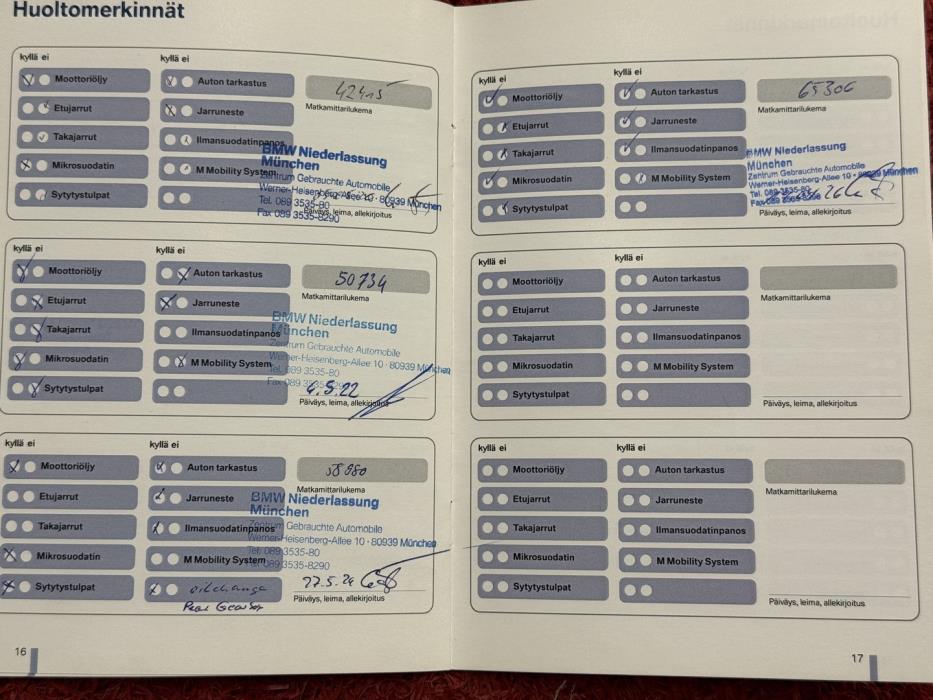 Huoltomerkinnät
kyllä ei
kyllä ei
Moottoriöljy
Auton tarkastus
42415
Etujarrut
Jarruneste
Matkamittarilukema
Takajarrut
Ilmansuodatinpanos
Mikrosuodatin
M Mobility System
Sytytystulpat
BMW Niederlassung
München
Zentrum Gebrauchte Automobile
Werner-Heisenberg-Allee 10 · 80939 München
Tel. 089 3535-80
Fax 089 3535-8290
Päiväys, leima, allekirjoitus
kyllä ei
kyllä ei
Moottoriöljy
Auton tarkastus
50734
Etujarrut
Jarruneste
Matkamittarilukema
Takajarrut
Ilmansuodatinpanos
Mikrosuodatin
M Mobility System
Sytytystulpat
BMW Niederlassung
München
Zentrum Gebrauchte Automobile
Werner-Heisenberg-Allee 10 · 80939 München
Tel. 089 3535-80
Fax 089 3535-8290
4.5.22
Päiväys, leima, allekirjoitus
kyllä ei
kyllä ei
Moottoriöljy
Auton tarkastus
58980
Etujarrut
Jarruneste
Matkamittarilukema
Takajarrut
Ilmansuodatinpanos
Mikrosuodatin
M Mobility System
Sytytystulpat
oilchange
BMW Niederlassung
München
Zentrum Gebrauchte Automobile
Werner-Heisenberg-Allee 10 · 80939 München
Tel. 089 3535-80
Fax 089 3535-8290
27.5.24
Päiväys, leima, allekirjoitus
16
kyllä ei
kyllä ei
Moottoriöljy
Auton tarkastus
65306
Etujarrut
Jarruneste
Matkamittarilukema
Takajarrut
Ilmansuodatinpanos
Mikrosuodatin
M Mobility System
Sytytystulpat
BMW Niederlassung
München
Zentrum Gebrauchte Automobile
Werner-Heisenberg-Allee 10 · 80939 München
Tel. 089 3535-80
Fax 089 3535-8290
Päiväys, leima, allekirjoitus
kyllä ei
kyllä ei
Moottoriöljy
Auton tarkastus
Etujarrut
Jarruneste
Matkamittarilukema
Takajarrut
Ilmansuodatinpanos
Mikrosuodatin
M Mobility System
Sytytystulpat
Päiväys, leima, allekirjoitus
kyllä ei
kyllä ei
Moottoriöljy
Auton tarkastus
Etujarrut
Jarruneste
Matkamittarilukema
Takajarrut
Ilmansuodatinpanos
Mikrosuodatin
M Mobility System
Sytytystulpat
Päiväys, leima, allekirjoitus
17